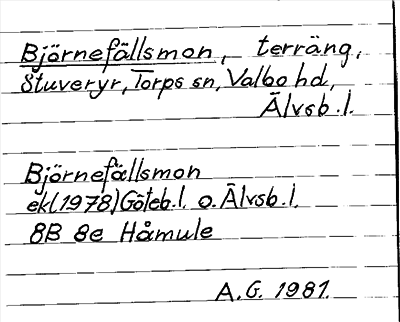 Björnefällsmon, terräng,
Stuveryr, Torps sn, Valbo hd,
Älvsb.l.
Björnefällsmon
ek(1978) Göteb.l. o. Älvsb.l.
8B 8e Håmule
A.G. 1981.